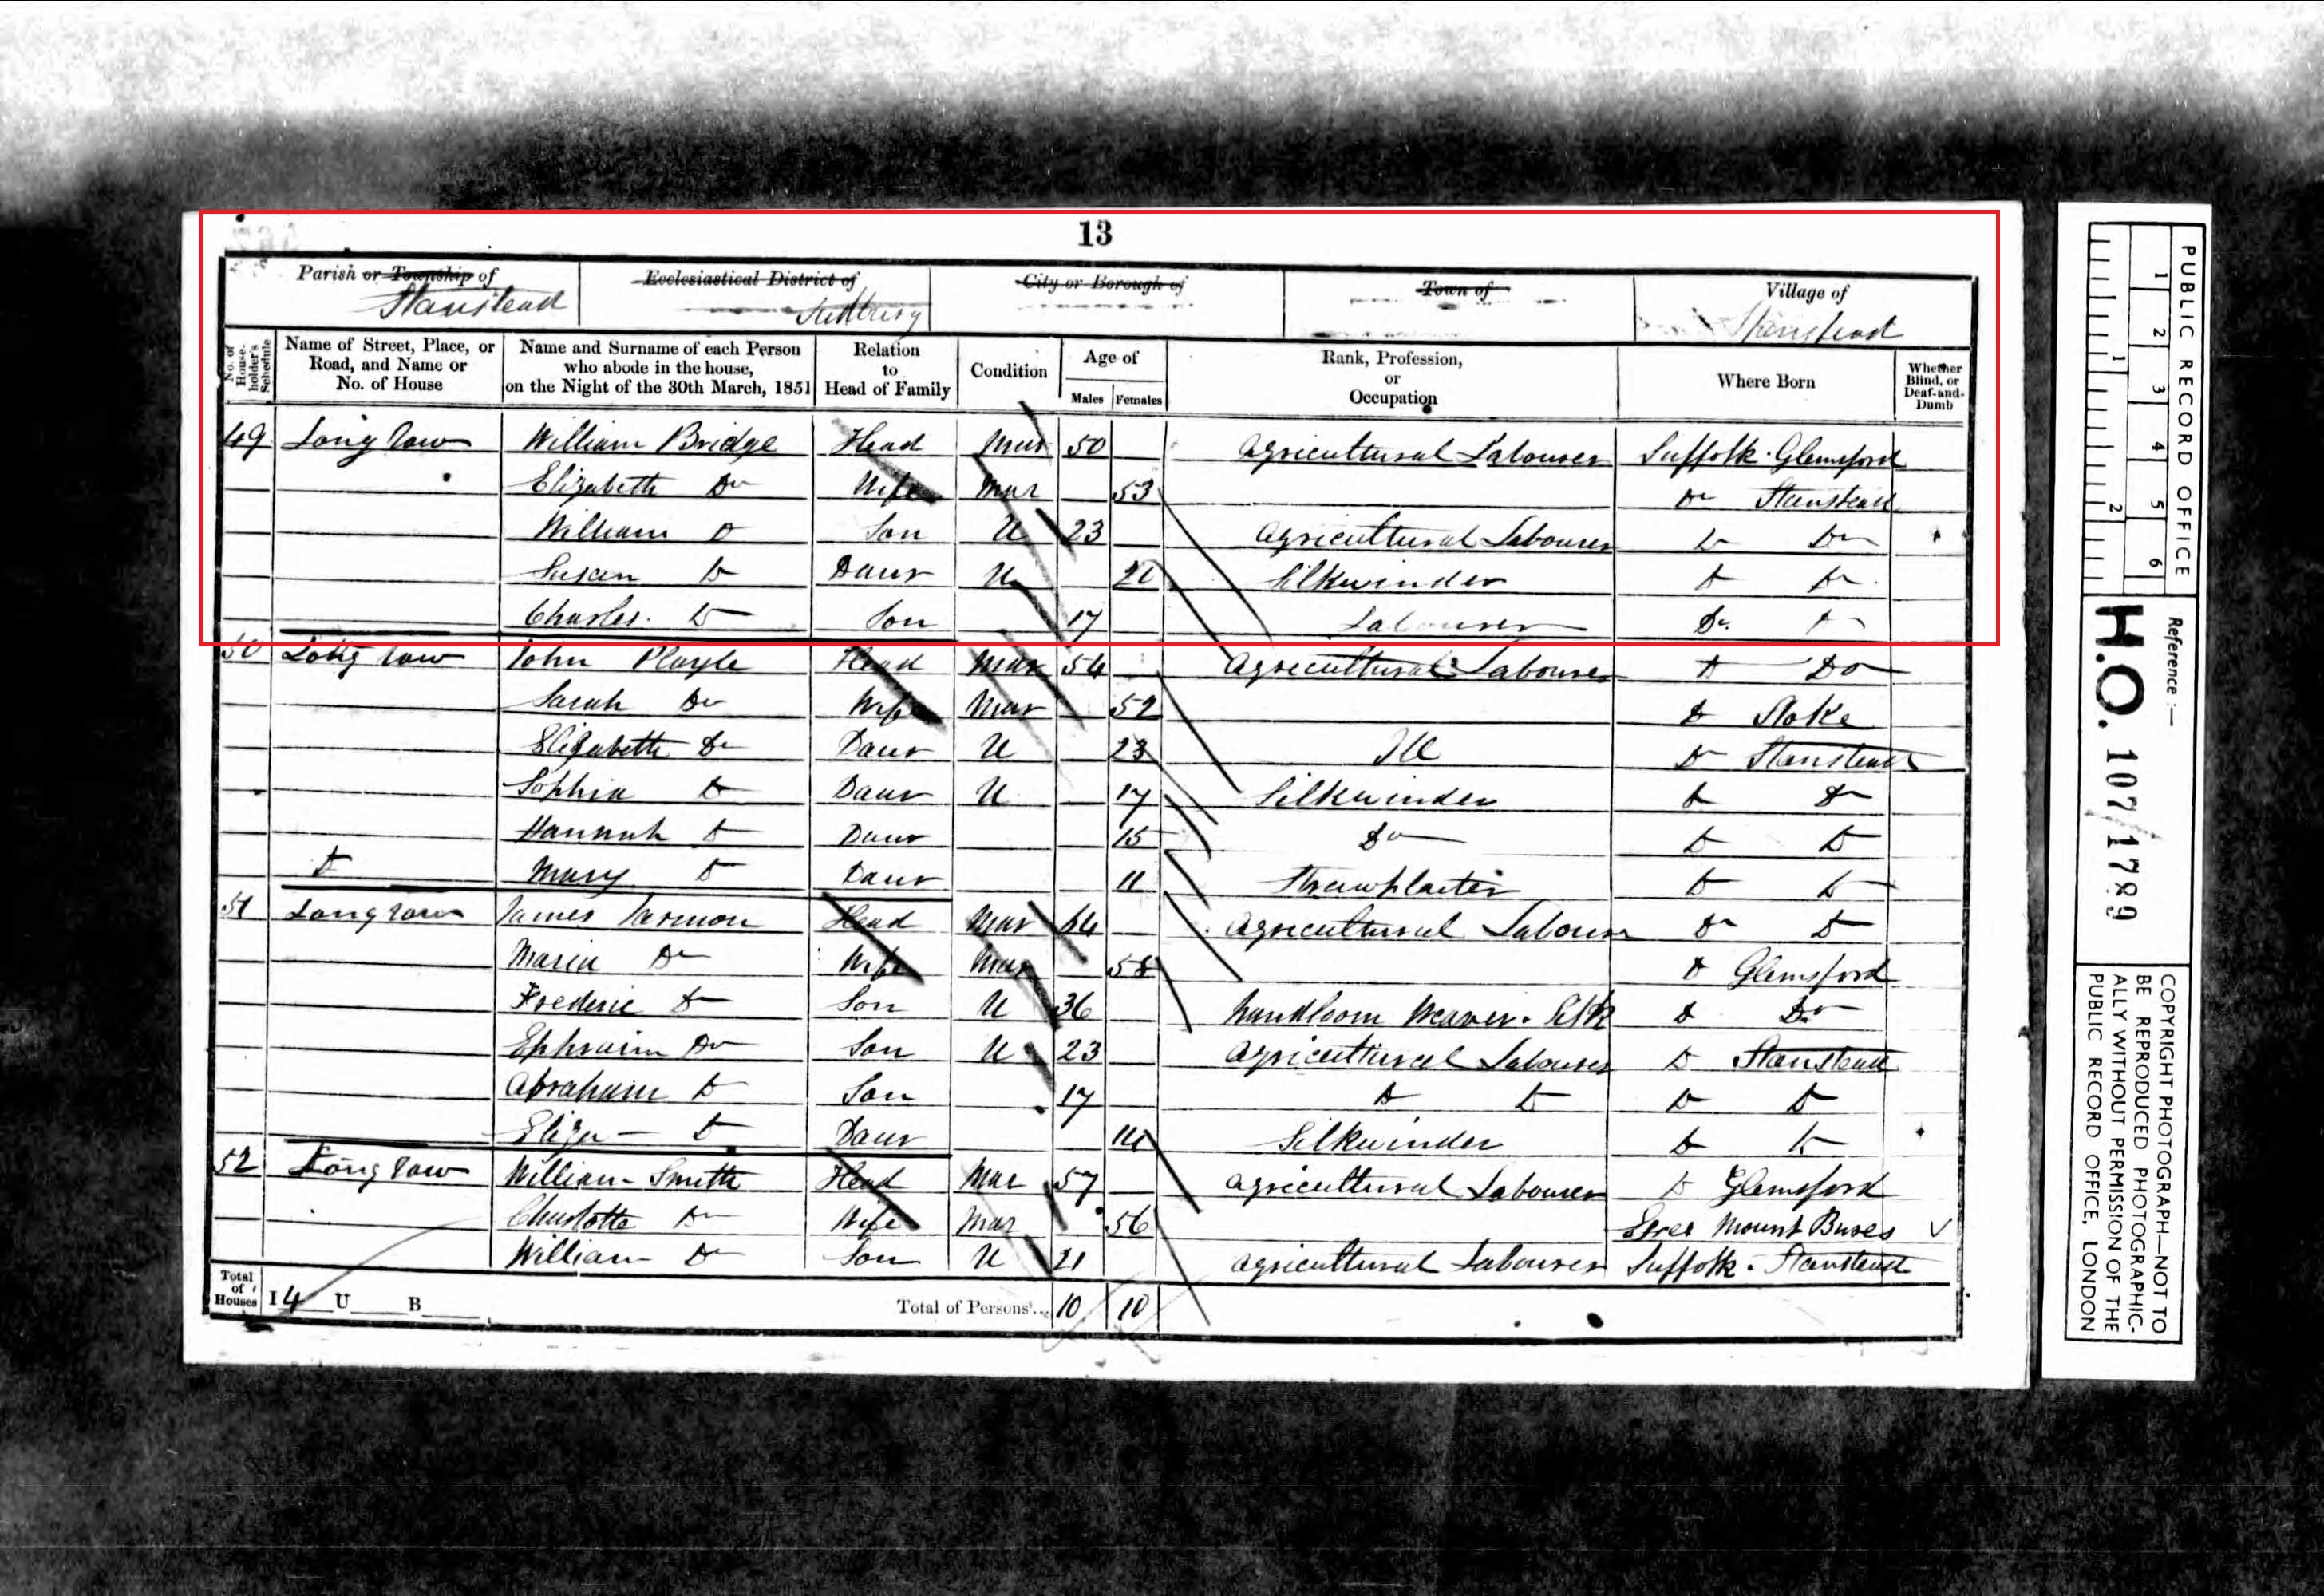 13
Parish or Township of Stanstead
Ecclesiastical District of Sudbury
City or Borough of
Town of
Village of Stanstead
No. of House-holder's Schedule
Name of Street, Place, or Road, and Name or No. of House
Name and Surname of each Person who abode in the house, on the Night of the 30th March, 1851
Relation to Head of Family
Condition
Age of
Males Females
Rank, Profession, or Occupation
Where Born
Whether Blind, or Deaf-and-Dumb
49 Long row William Bridge Head Mar 50 Agricultural Labourer Suffolk Glemsford
Elizabeth Do Wife Mar 53 Do Stanstead
William D Son U 23 Agricultural Labourer D Do
Susan D Daur U Silkwinder D Do
Charles D Son 17 Labourer Do D
50 Long row John Playle Head Mar 54 Agricultural Labourer D Do
Sarah Do Wife Mar 52 D Stoke
Elizabeth Do Daur U 23 Ill Do Stanstead
Sophia D Daur U 17 Silkwinder D Do
Hannah D Daur 15 Do D D
D Mary D Daur 11 Strawplaiter D D
51 Long row James Head Mar 64 Agricultural Labourer Do D
Maria Do Wife Mar 58 D Glemsford
Frederic D Son U 36 Handloom Weaver. Silk D Do
Ephraim Do Son U 23 Agricultural Labourer D Stanstead
Abraham D Son 17 D D D D
Eliza D Daur 14 Silkwinder D D
52 Long row William Smith Head Mar 57 Agricultural Labourer D Glemsford
Charlotte Do Wife Mar 56 Essex Mount Bures
William Do Son U 21 Agricultural Labourer Suffolk. Stanstead
Total of Houses I 4 U B Total of Persons... 10 10
PUBLIC RECORD OFFICE
1 2 3 4 5 6
1 2
Reference :—
H.O. 107/1789
COPYRIGHT PHOTOGRAPH—NOT TO
BE REPRODUCED PHOTOGRAPHIC-
ALLY WITHOUT PERMISSION OF THE
PUBLIC RECORD OFFICE, LONDON